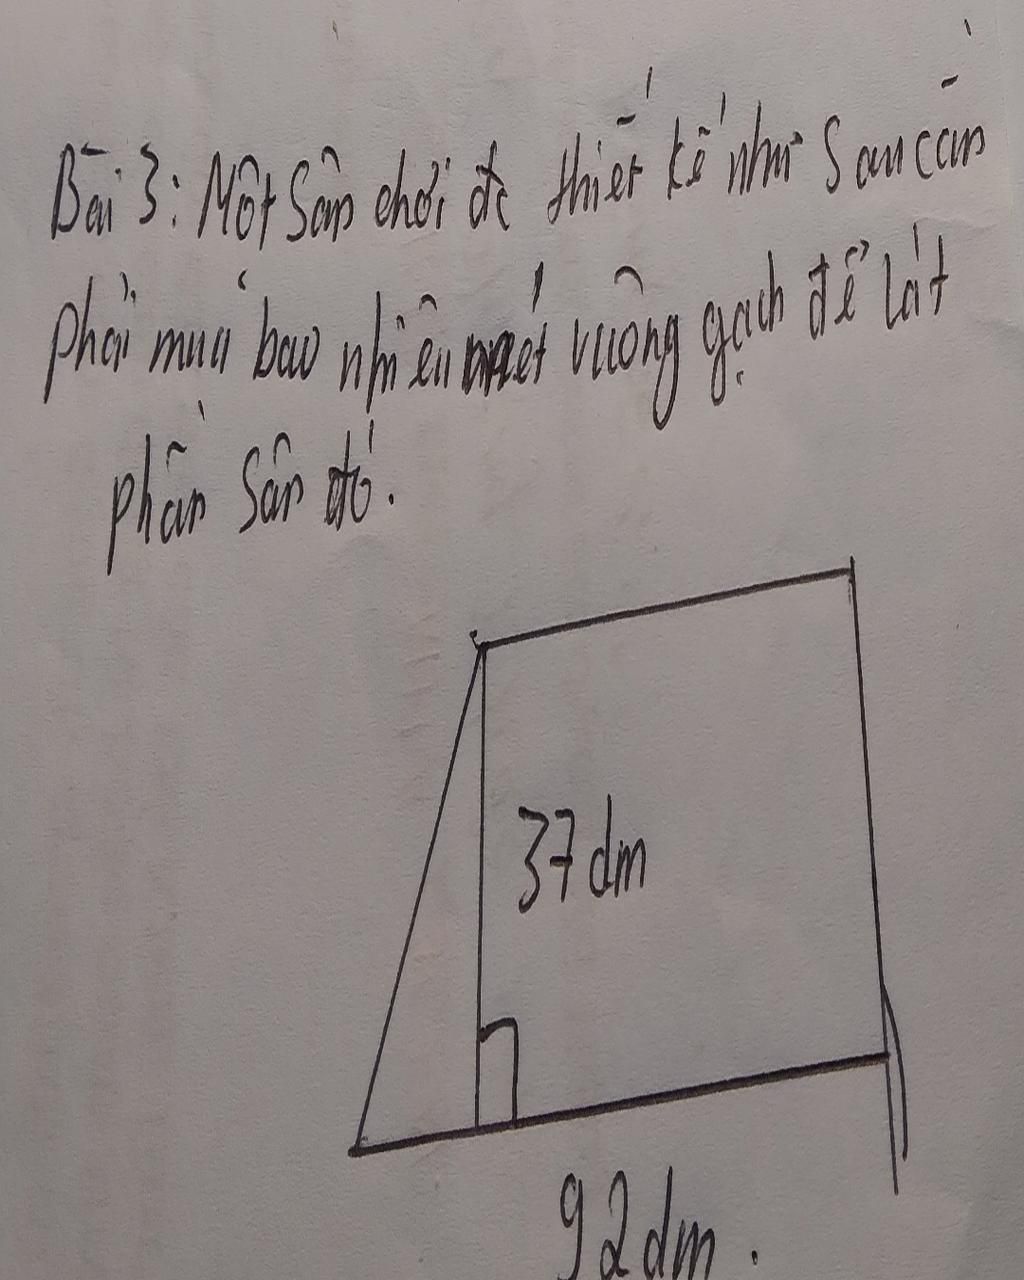 Bài 3: Một sân chơi đc thiết kế như sau cần
phải mua bao nhiêu mét vuông gạch để lát
phần sân đó.
37 dm
92 dm.